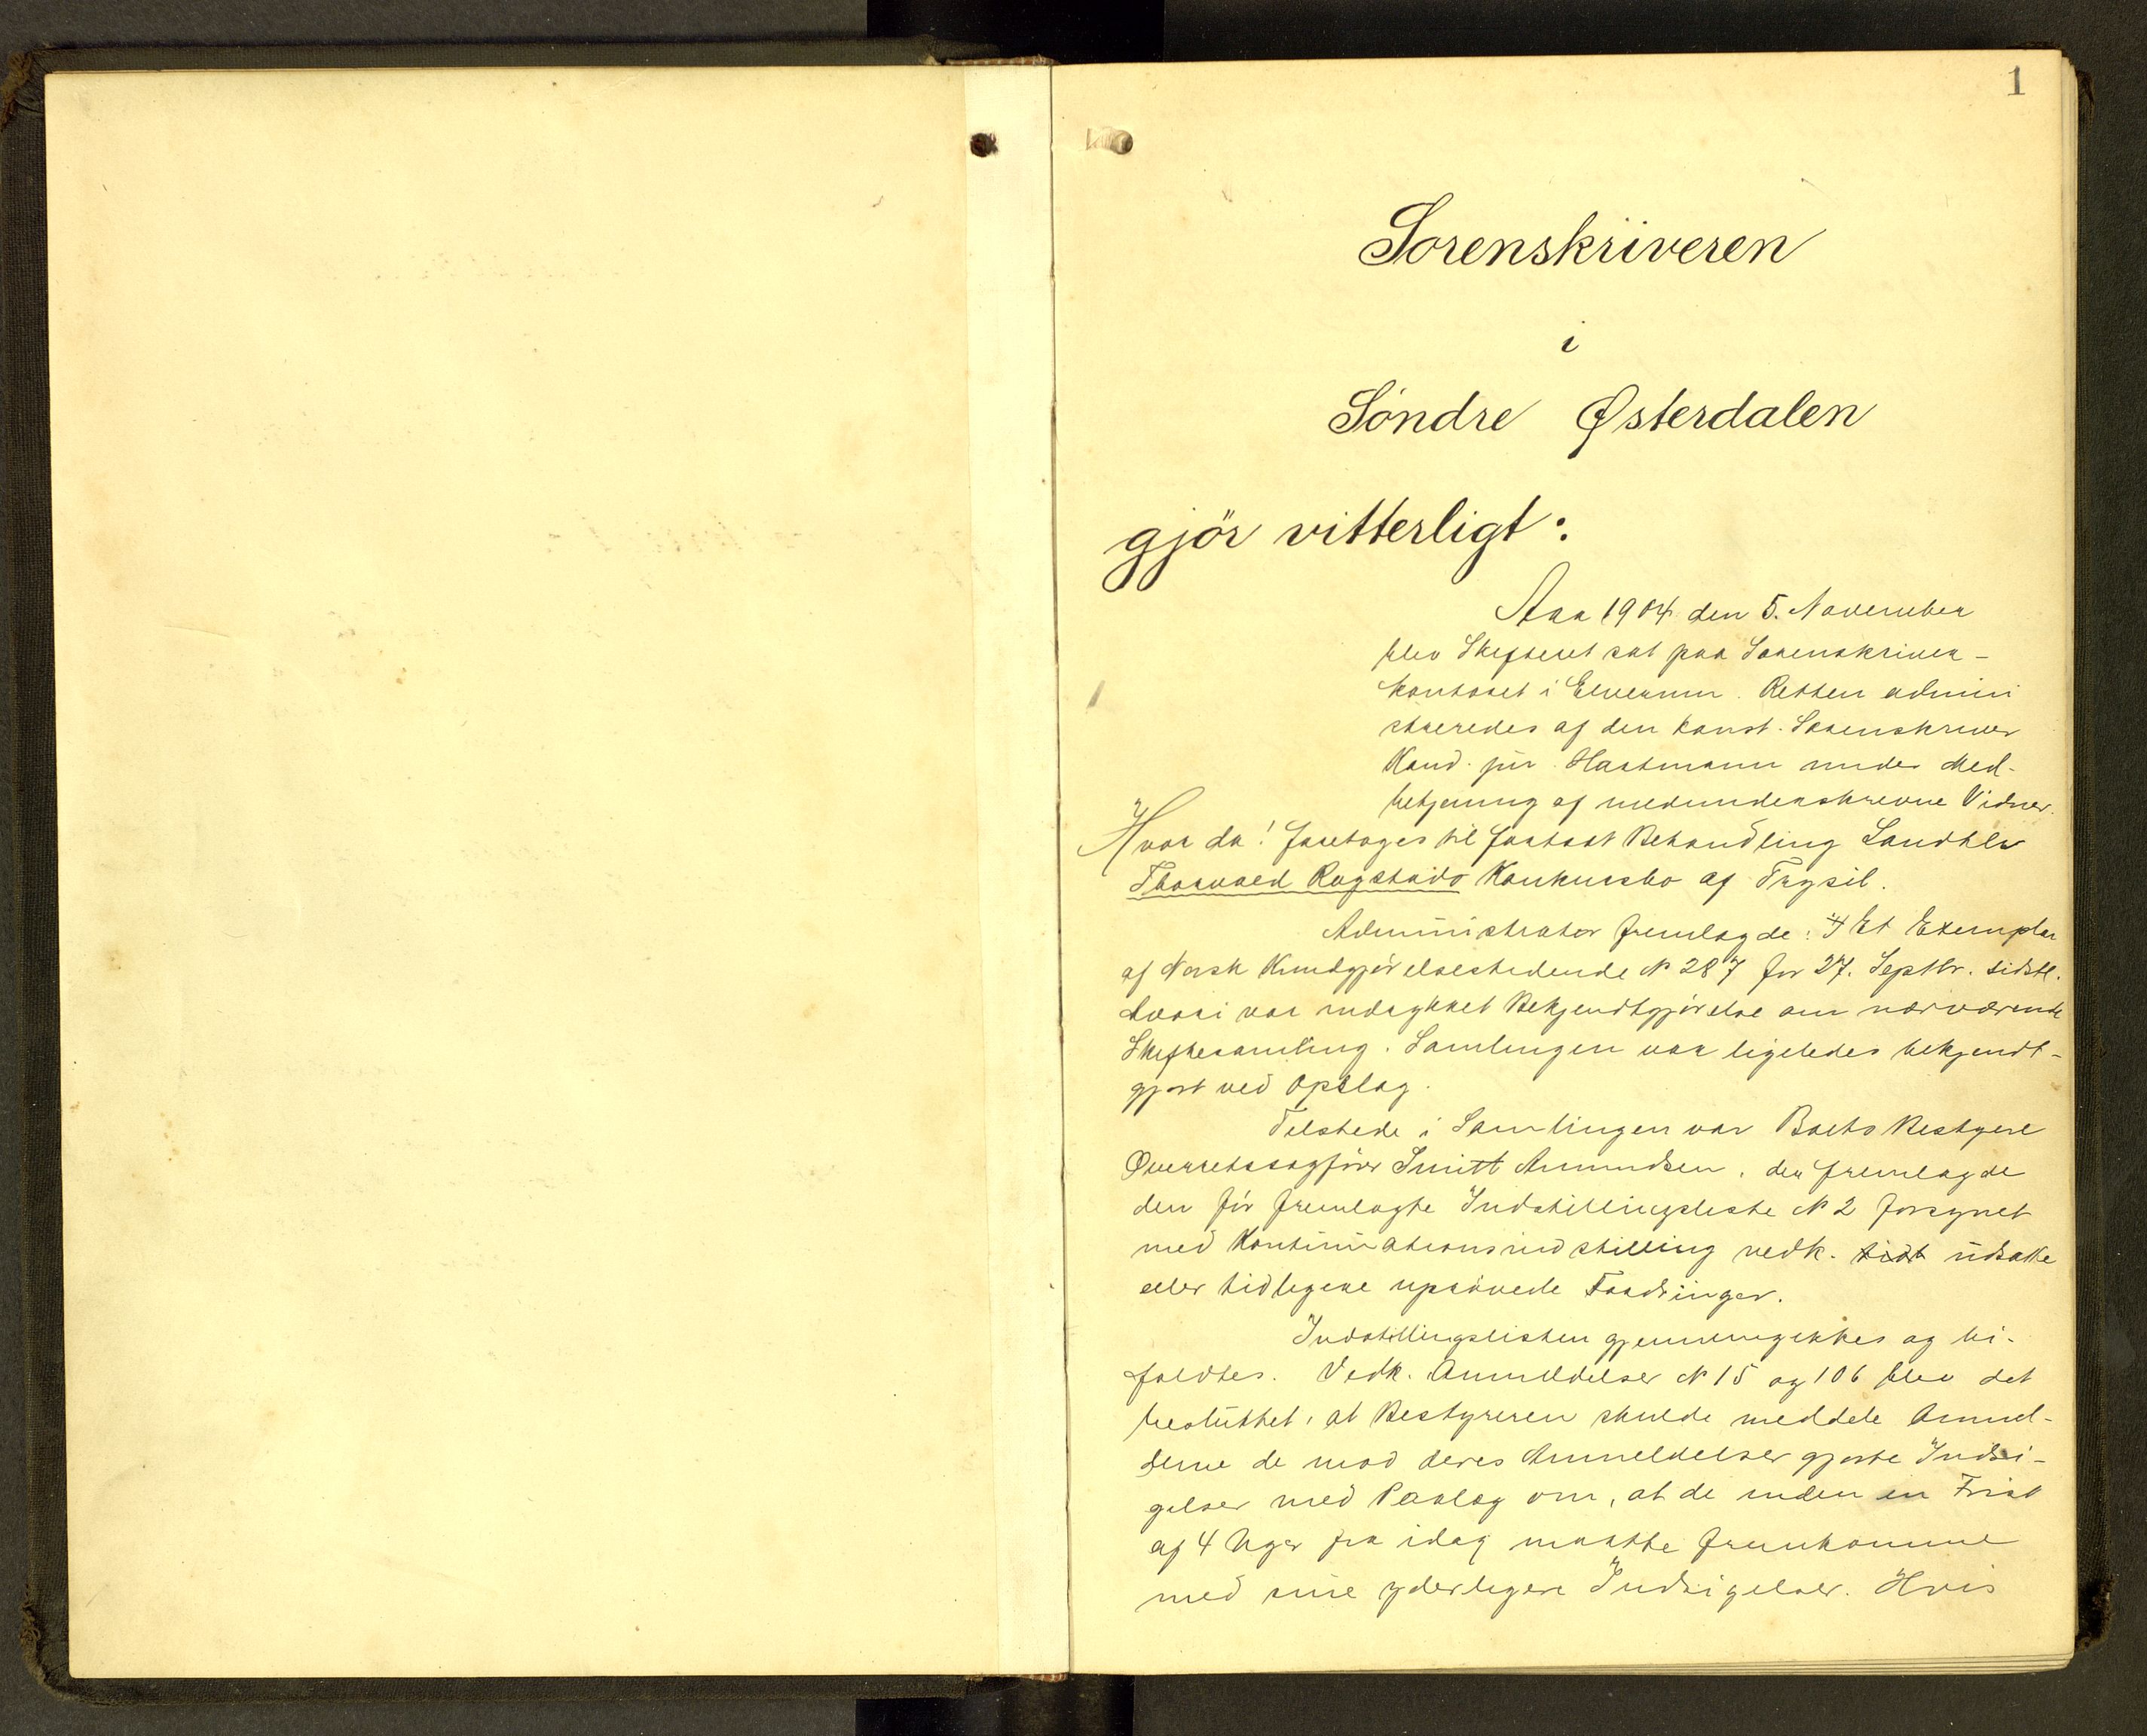 1
Sorenskriveren
i
Söndre Østerdalen
gjör vitterligt:
Aar 1904 den 5. November
blev Skifteret sat paa Sorenskriver-
kontoret i Elverum. Retten admini
streredes af den konst. Sorenskriver
Kand. jur. Hartmann under Med-
betjening af medunderskrevne Vidner.
Hvor da! foretoges til fortsat Behandling Landhlr
Thorvald Rugstads Konkursbo af Trysil.
Administrator fremlagde: Et Exemplar
af Norsk Kundgjörelsestidende N 287 for 27. Septbr. sidstl.
hvori var indrykket Bekjendtgjörelse om nærværende
Skiftesamling. Samlingen var ligeledes bekjendt-
gjort ved Opslag.
Tilstede i Samlingen var Boets Bestyrer
Overretssagförer Smitt Amundsen, der fremlagde
den för fremlagte Indstillingsliste N 2 forsynet
med Kontinuationsindstilling vedk. tidt udsatte
eller tidligere upröved Fordringer.
Indstillingslisten gjennemgikkes og bi-
faldtes. Vedk. Anmeldelser N 15 og 106 blev det
besluttet, at Bestyreren skulde meddele Anmel-
derne de mod deres Anmeldelser gjorte Indsi-
gelser med Paalæg om, at de inden en Frist
af 4 Uger fra idag maatte fremkomme
med sine yderligere Indsigelser. Hvis